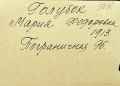 Голубок
Мария Федоровна
1913.
Пограничная 76.